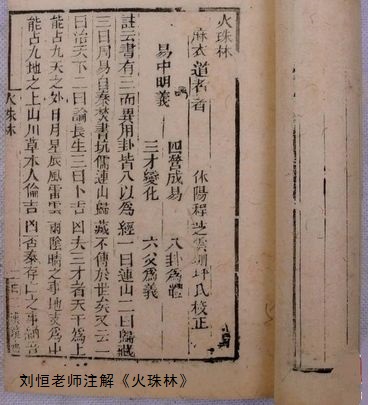 火珠林
麻衣道者著 休陽程芝雲坪氏校正
四營成易 八卦為體
易中明義
三才變化 六爻為義
註云書有三而異用卦皆八以為經一曰連山二曰歸藏
三曰周易自秦焚書坑儒連山歸藏不傳於世矣又云一
曰治天下二曰論長生三曰卜吉凶夫三才者天為上
能占九天之外日月星辰風雷雲雨陰晴之事地支為中
能占九地之上山川草木人倫吉凶否泰存亡之事納音
火珠林
刘恒老师注解《火珠林》